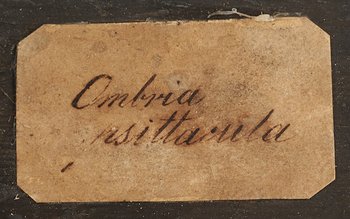 Ombria
psittacula